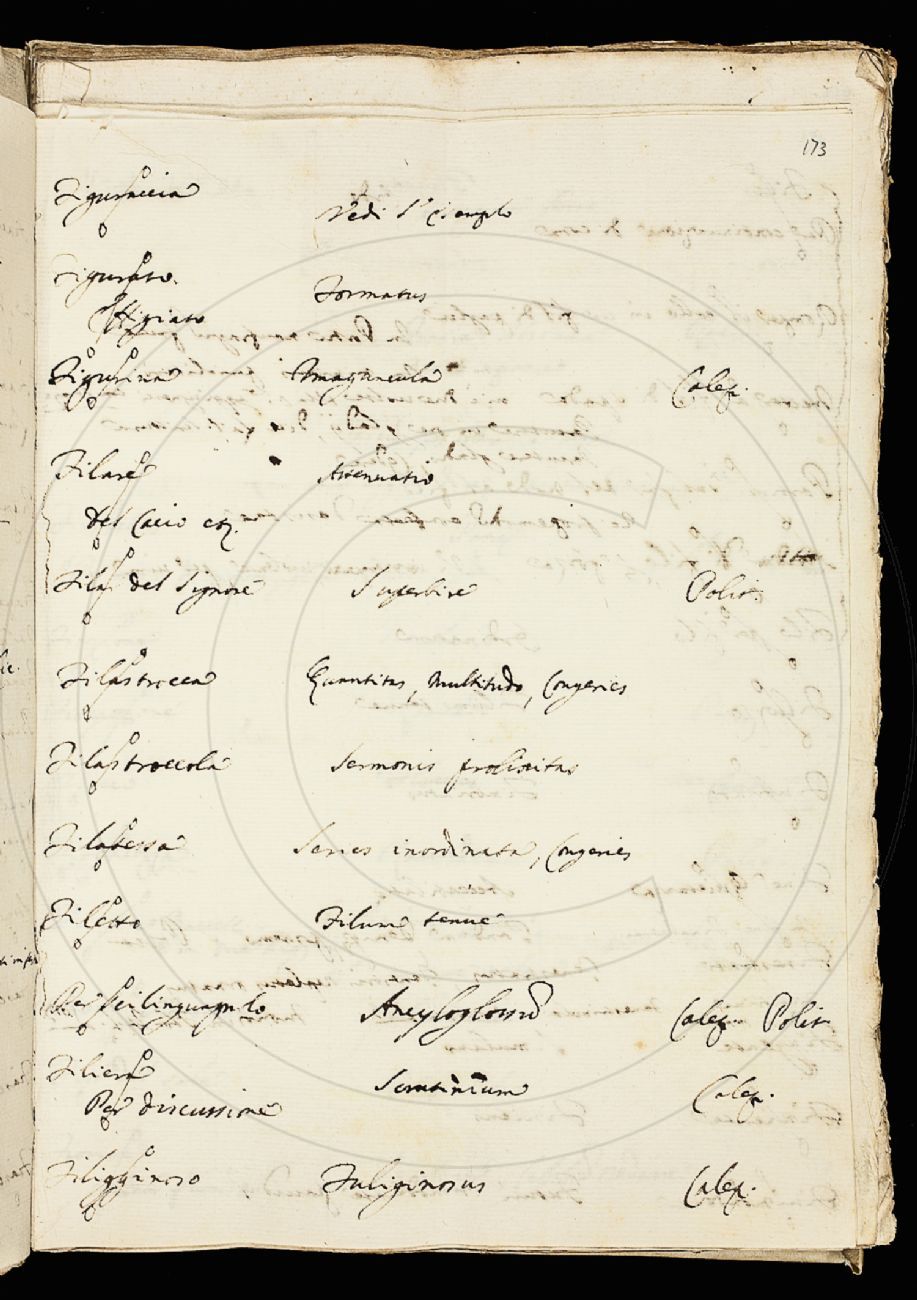 173
Figuraccia
Vedi l'esemplo
Figurato.
Effigiato Formatus
Figurina Imaguncula Calep.
Filare Attenuatio
del Cacio etc.
Filar del Signore Superbire Polit.
Filastrocca Quantitas, Multitudo, Congeries
Filastroccola Sermonis prolixitas
Filatessa Series inordinata, Congeries
Filetto Filum tenue
Per scilinguagnolo Ancyloglossum Calep. Polit.
Filiera
Per discussione Scrutinium Calep.
Filigginoso Fuliginosus Calep.